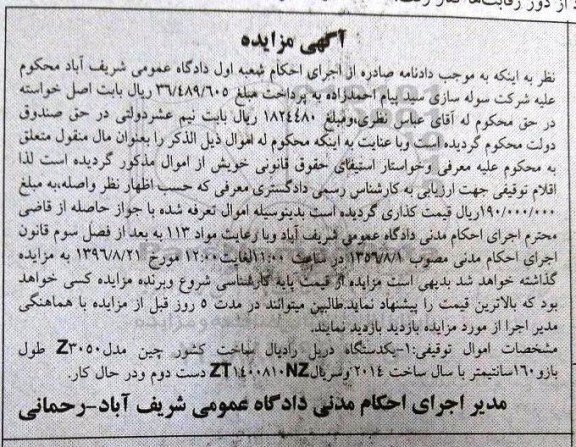 آگهی مزایده
نظر به اینکه به موجب دادنامه صادره از اجرای احکام شعبه اول دادگاه عمومی شریف آباد محکوم
علیه شرکت سوله سازی سید پیام احمدزاده به پرداخت مبلغ ۳۶/۴۸۹/۶۰۵ ریال بابت اصل خواسته
در حق محکوم له آقای عباس نظری،ومبلغ ۱۸۲۴۴۸۰ ریال بابت نیم عشردولتی در حق صندوق
دولت محکوم گردیده است وبا عنایت به اینکه محکوم له اموال ذیل الذکر را بعنوان مال منقول متعلق
به محکوم علیه معرفی وخواستار استیفای حقوق قانونی خویش از اموال مذکور گردیده است لذا
اقلام توقیفی جهت ارزیابی به کارشناس رسمی دادگستری معرفی که حسب اظهار نظر واصله،به مبلغ
۱۹۰/۰۰۰/۰۰۰ریال قیمت گذاری گردیده است بدینوسیله اموال تعرفه شده با جواز حاصله از قاضی
محترم اجرای احکام مدنی دادگاه عمومی شریف آباد وبا رعایت مواد ۱۱۳ به بعد از فصل سوم قانون
اجرای احکام مدنی مصوب ۱۳۵۶/۸/۱ در ساعت ۱۱:۰۰لغایت۱۲:۰۰ مورخ ۱۳۹۶/۸/۲۱ به مزایده
گذاشته خواهد شد بدیهی است مزایده از قیمت پایه کارشناسی شروع وبرنده مزایده کسی خواهد
بود که بالاترین قیمت را پیشنهاد نماید.طالبین میتوانند در مدت ۵ روز قبل از مزایده با هماهنگی
مدیر اجرا از مورد مزایده بازدید بازدید نمایند.
مشخصات اموال توقیفی:۱-یکدستگاه دریل رادیال ساخت کشور چین مدل Z۳۰۵۰ طول
بازو۱۶۰سانتیمتر با سال ساخت ۲۰۱۴ وسریالZT۱۴۰۰۸۱۰NZ دست دوم ودر حال کار.
مدیر اجرای احکام مدنی دادگاه عمومی شریف آباد-رحمانی